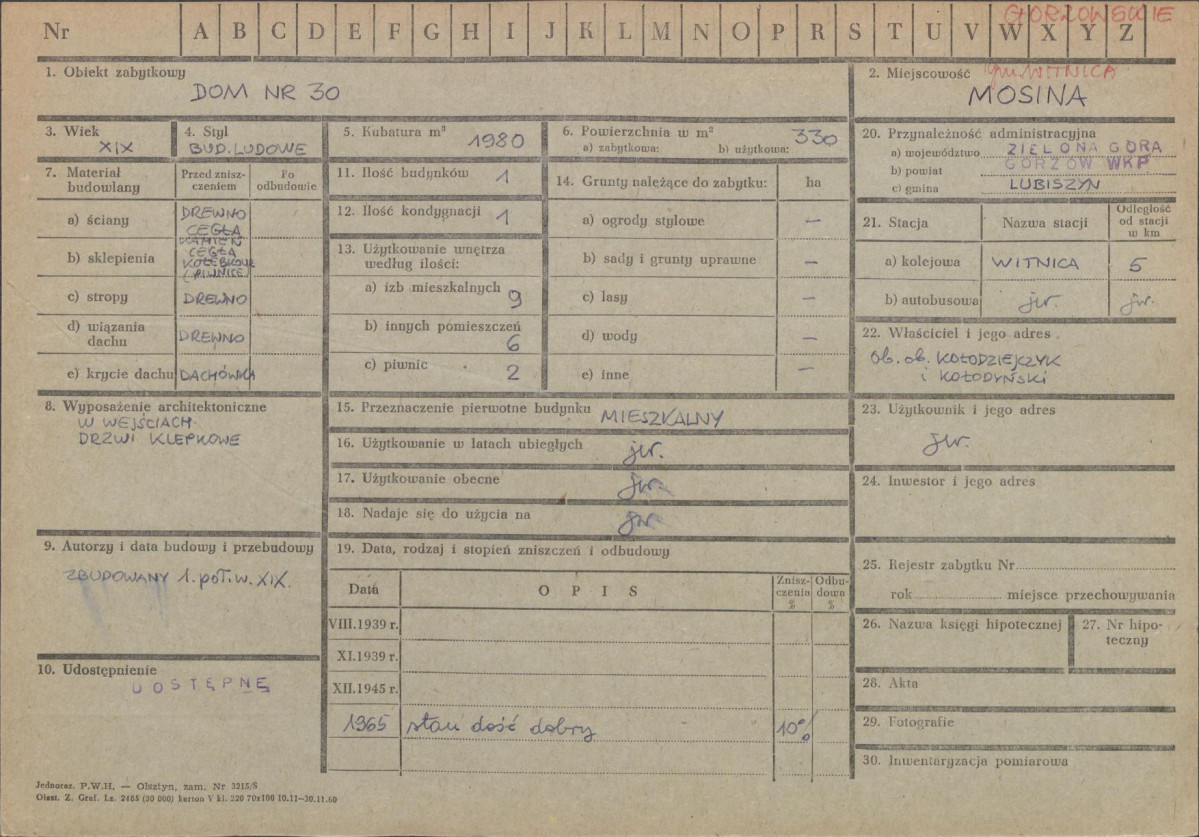 GORZOWSKIE
Nr A B C D E F G H I J K L M N O P R S T U V W X Y Z
1. Obiekt zabytkowy
DOM NR 30
2. Miejscowość gm. WITNICA
MOSINA
3. Wiek
XIX
4. Styl
BUD. LUDOWE
5. Kubatura m³ 1980
6. Powierzchnia w m² 330
a) zabytkowa: b) użytkowa:
20. Przynależność administracyjna
a) województwo ZIELONA GÓRA
b) powiat GORZÓW WKP.
c) gmina LUBISZYN
7. Materiał budowlany
Przed zniszczeniem
Po odbudowie
a) ściany DREWNO
CEGŁA
b) sklepienia KAMIEŃ
CEGŁA
KOLEBKOWE
(PIWNICE)
c) stropy DREWNO
d) wiązania dachu DREWNO
e) krycie dachu DACHÓWKA
11. Ilość budynków 1
12. Ilość kondygnacji 1
13. Użytkowanie wnętrza
według ilości:
a) izb mieszkalnych 9
b) innych pomieszczeń 6
c) piwnic 2
14. Grunty należące do zabytku: ha
a) ogrody stylowe —
b) sady i grunty uprawne —
c) lasy —
d) wody —
e) inne —
21. Stacja Nazwa stacji Odległość od stacji w km
a) kolejowa WITNICA 5
b) autobusowa jw. jw.
22. Właściciel i jego adres
Ob. ob. KOŁODZIEJCZYK
i KOŁODYŃSKI
8. Wyposażenie architektoniczne
W WEJŚCIACH
DRZWI KLEPKOWE
15. Przeznaczenie pierwotne budynku MIESZKALNY
16. Użytkowanie w latach ubiegłych jw.
17. Użytkowanie obecne jw.
18. Nadaje się do użycia na jw.
23. Użytkownik i jego adres
jw.
24. Inwestor i jego adres
9. Autorzy i data budowy i przebudowy
ZBUDOWANY 1. poł. w. XIX.
10. Udostępnienie
UDSTĘPNE
19. Data, rodzaj i stopień zniszczeń i odbudowy
Data OPIS Zniszczenia % Odbudowa %
VIII.1939 r.
XI.1939 r.
XII.1945 r.
1965 stan dość dobry 10%
25. Rejestr zabytku Nr
rok miejsce przechowywania
26. Nazwa księgi hipotecznej
27. Nr hipoteczny
28. Akta
29. Fotografie
30. Inwentaryzacja pomiarowa
Jednoraz. P.W.H. — Olsztyn, zam. Nr 3215/S
Olszt. Z. Graf. Lz. 2485 (30 000) karton V kl. 220 70x100 10.11—30.11.60